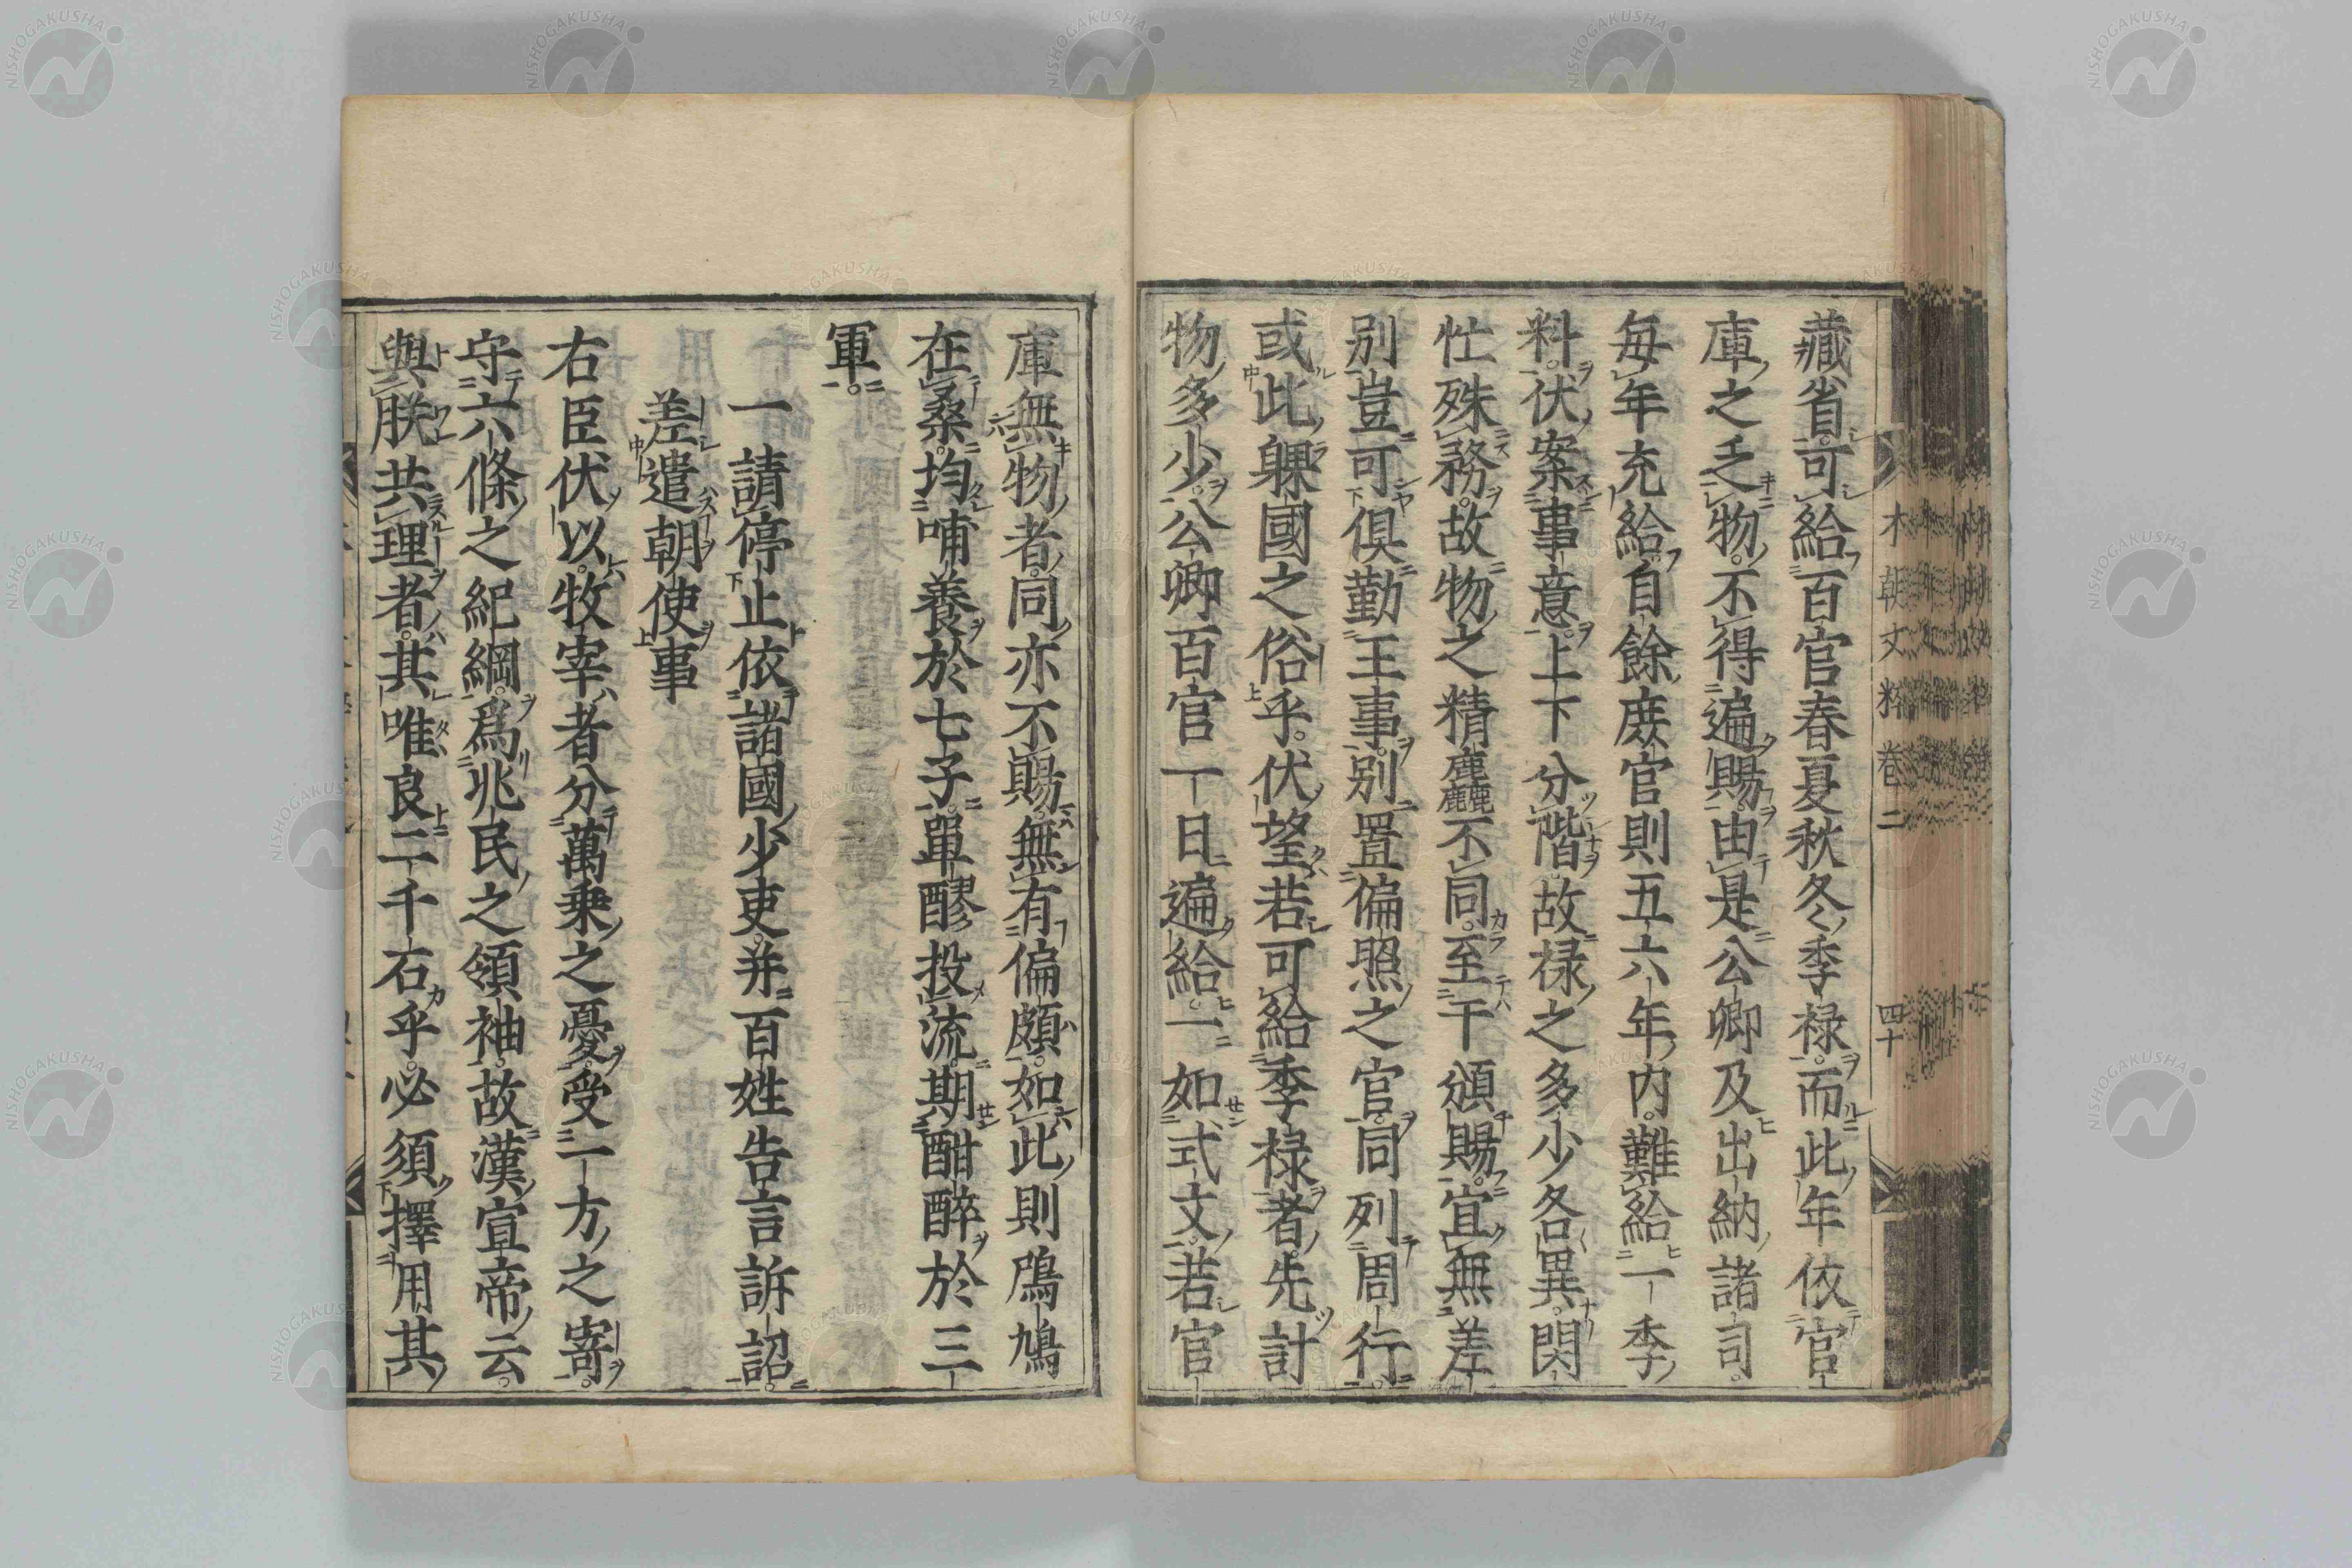 藏省可給百官春夏秋冬季禄而此年依官
庫之乏物不得遍賜由是公卿及出納諸司
毎年充給自餘庶官則五六年内難給一季
料伏案事意上下分階故禄之多少各異閑
忙殊務故物之精麤不同至干頒賜宜無差
別豈可倶勤王事別置偏照之官同列周行
或此躶國之俗乎伏望若可給季禄者先計
物多少公卿百官一日遍給一如式文若官
庫無物者同亦不賜無有偏頗如此則鳲鳩
在桑均哺養於七子單醪投流期酣醉於三
軍
一請停止依諸國少吏并百姓告言訴詔
差遣朝使事
右臣伏以牧宰者分萬乗之憂受一方之寄
守六條之紀綱爲兆民之領袖故漢宣帝云
與朕共理者其唯良二千石乎必須擇用其
本朝文粹卷二
四十
NISHOGAKUSHA